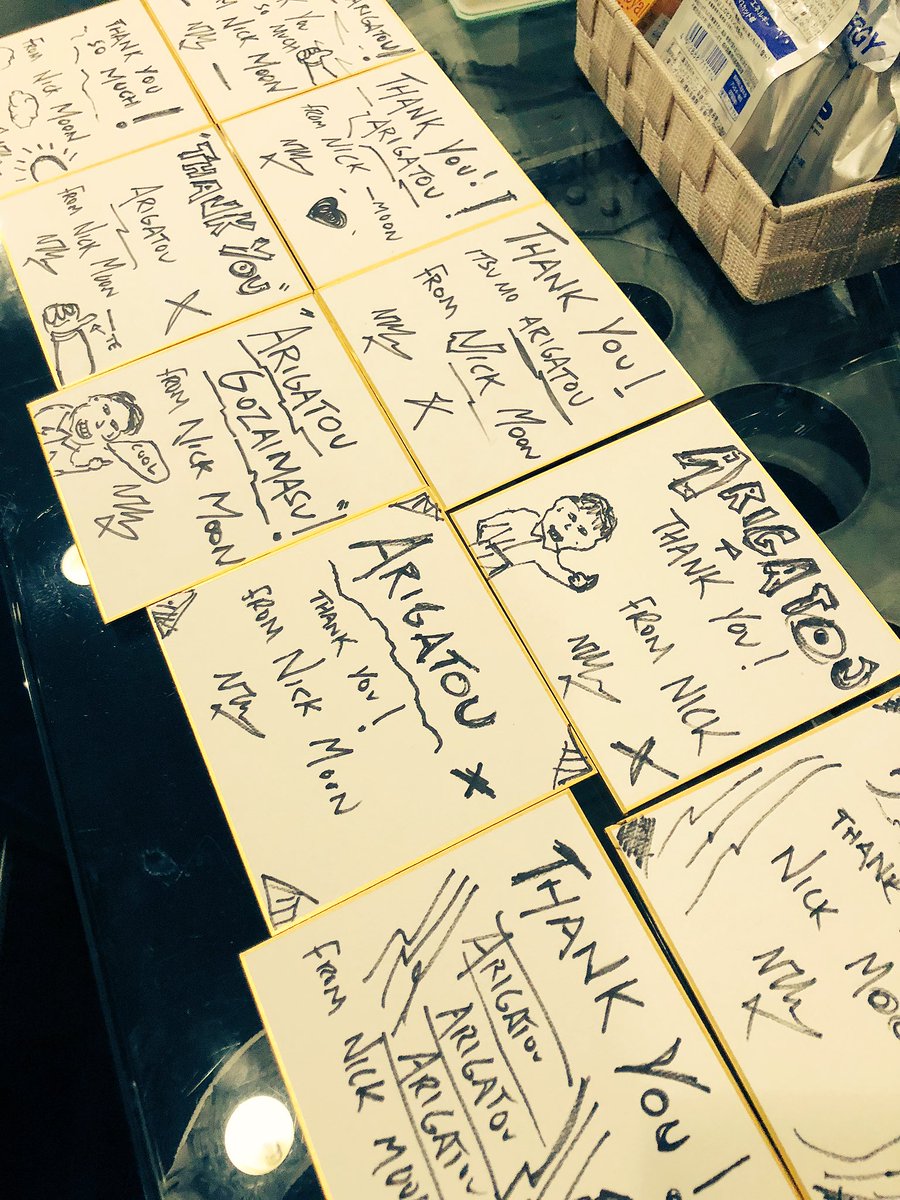 THANK YOU
SO MUCH!
FROM NICK MOON
ARIGATOU!
THANK YOU
SO MUCH
FROM NICK MOON
"THANK YOU"
ARIGATOU
FROM NICK MOON
X
THANK YOU!!
ARIGATOU
FROM NICK MOON
X
"ARIGATOU
GOZAIMASU!"
FROM NICK MOON
COOL
THANK YOU!
ITSUMO ARIGATOU
FROM NICK MOON
X
ARIGATOU
THANK YOU!
FROM NICK MOON
X
ARIGATO
+
THANK YOU!
FROM NICK
X
THANK YOU!
ARIGATOU
ARIGATOU
ARIGATOU
FROM NICK MOON
THANK
NICK MOO
エネルギー
RGY